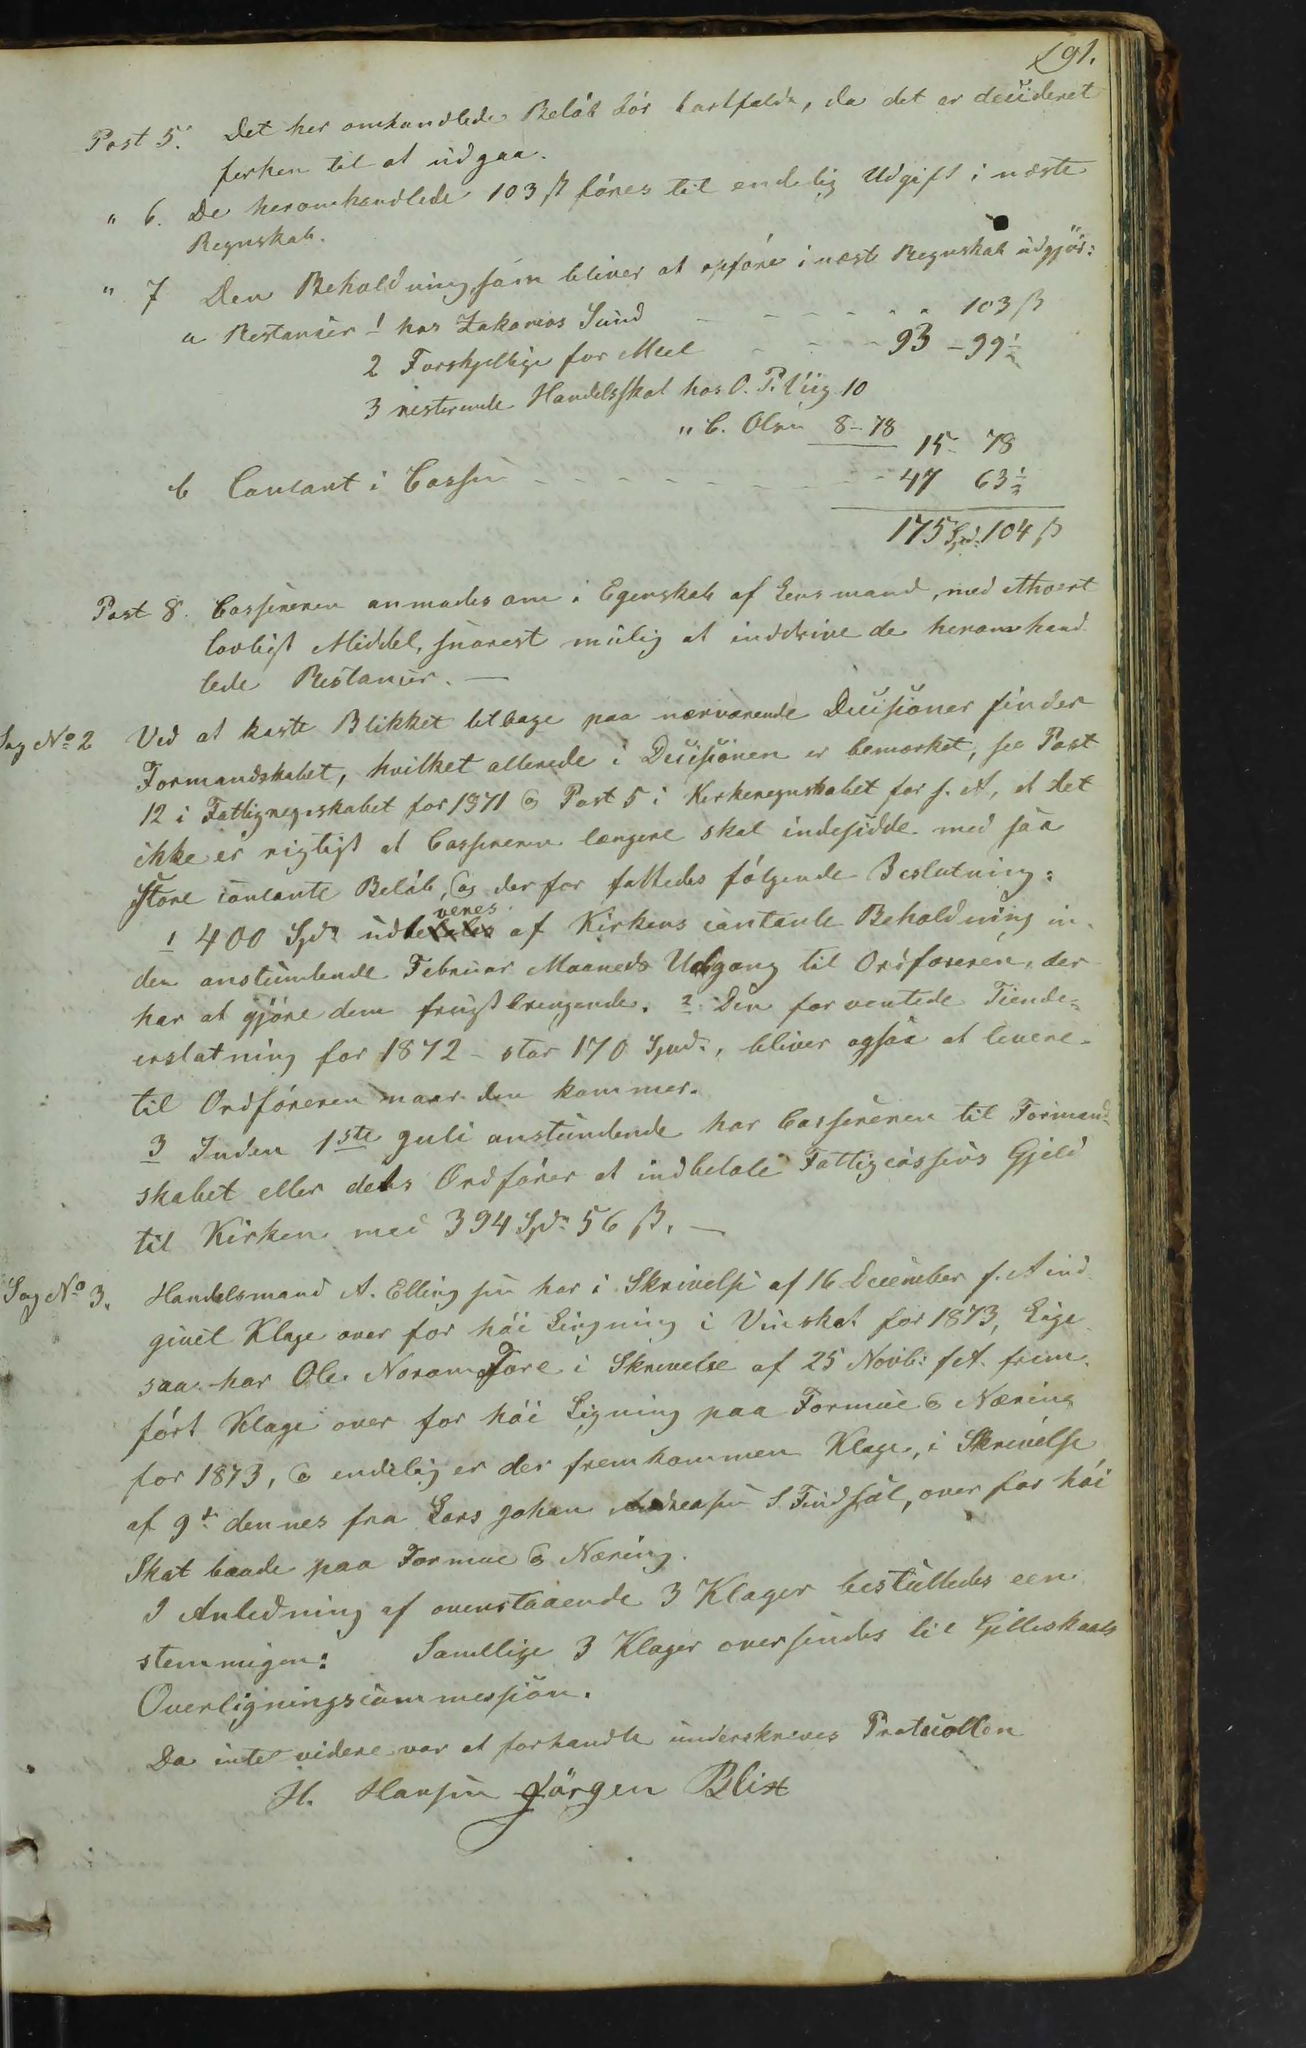 191.
Post 5. Det her omhandlede Beløb bør bortfalde, da det er decideret
forhen til at udgaa.
" 6. De heromhandlede 103 ß føres til endelig Udgift i næste
Regnskab.
" 7 Den Beholdning som bliver at opføre i næste Regnskab udgjør:
a Restancer 1 hos Zakarias Sund - - - - - - 103 ß
2 Forskjellige for Meel - - - - 93 - 99½
3 resterende Handelsskat hos O. P. 10
" C. Olsen 8 - 78
15 - 78
b Contant i Cassen - - - - - - - - - - 47 63½
175 Spd. 104 ß
Post 8. Cassereren anmodes om i Egenskab af Lensmand, med ethvert
lovligt Middel, snarest mulig at inddrive de heromhand
lede Restancer. —
Sag No 2 Ved at kaste Blikket tilbage paa nærværende Decisioner finder
Formandskabet, hvilket allerede i Decisionen er bemærket, see Post
12 i Fattigregnskabet for 1871 & Post 5 i Kirkeregnskabet for s. A, at det
ikke er rigtigt at Cassereren længere skal indesidde med saa
store contante Beløb, og derfor fattedes følgende Beslutning:
1 400 Spd. udleveres af Kirkens contante Beholdning in-
den anstundende Februar Maaneds Udgang til Ordføreren, der
har at gjøre dem frugtbringende. 2 Den forventede Tiende-
erstatning for 1872 - stor 170 Spd., bliver ogsaa at levere
til Ordføreren naar den kommer.
3 Inden 1ste Juli anstundende har Cassereren til Formand-
skabet eller dets Ordfører at indbetale Fattigcassens Gjeld
til Kirken med 394 Spd. 56 ß. —
Sag No 3. Handelsmand A. Ellingsen har i Skrivelse af 16 December f. A ind
givet Klage over for høi Ligning i Vinskat for 1873, Lige
saa har Ole Fore i Skrivelse af 25 Novb: f A. frem
ført Klage over for høi Ligning paa Formue & Næring
for 1873, & endelig er der fremkommen Klage, i Skrivelse
af 9de dennes fra Lars Johan Andreasen S. Findsæt, over for høi
Skat baade paa Formue & Næring.
I Anledning af ovenstaaende 3 Klager besluttedes een
stemmigen: Samtlige 3 Klager oversendes til Gilleskaals
Overligningscommession.
Da intet videre var at forhandle underskreves Protocollen
H. Hansen Jörgen Blix